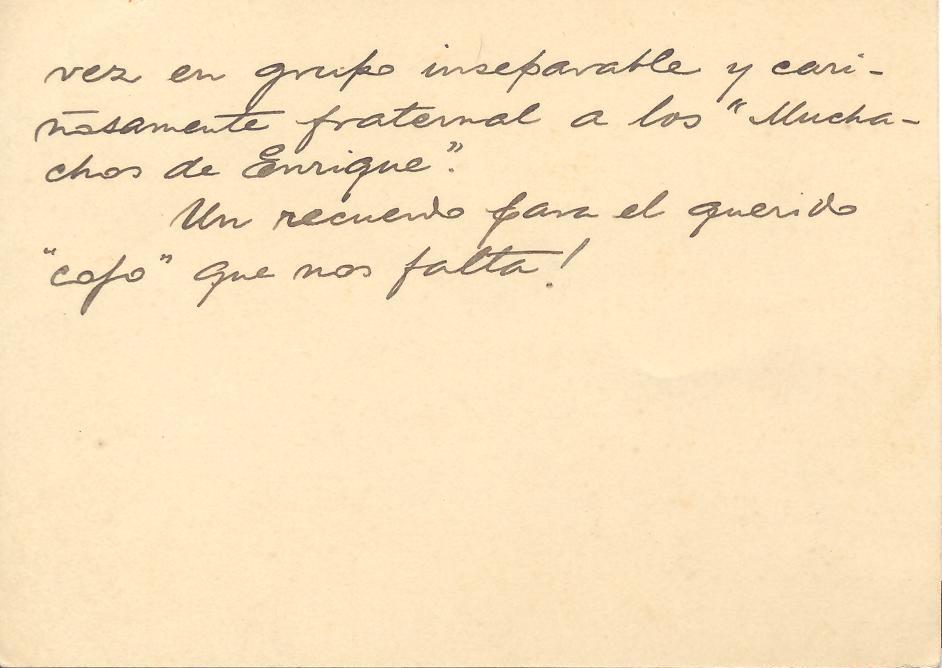 vez en grupo inseparable y cari-
ñosamente fraternal a los "Mucha-
chos de Enrique".
Un recuerdo para el querido
"cojo" que nos falta!